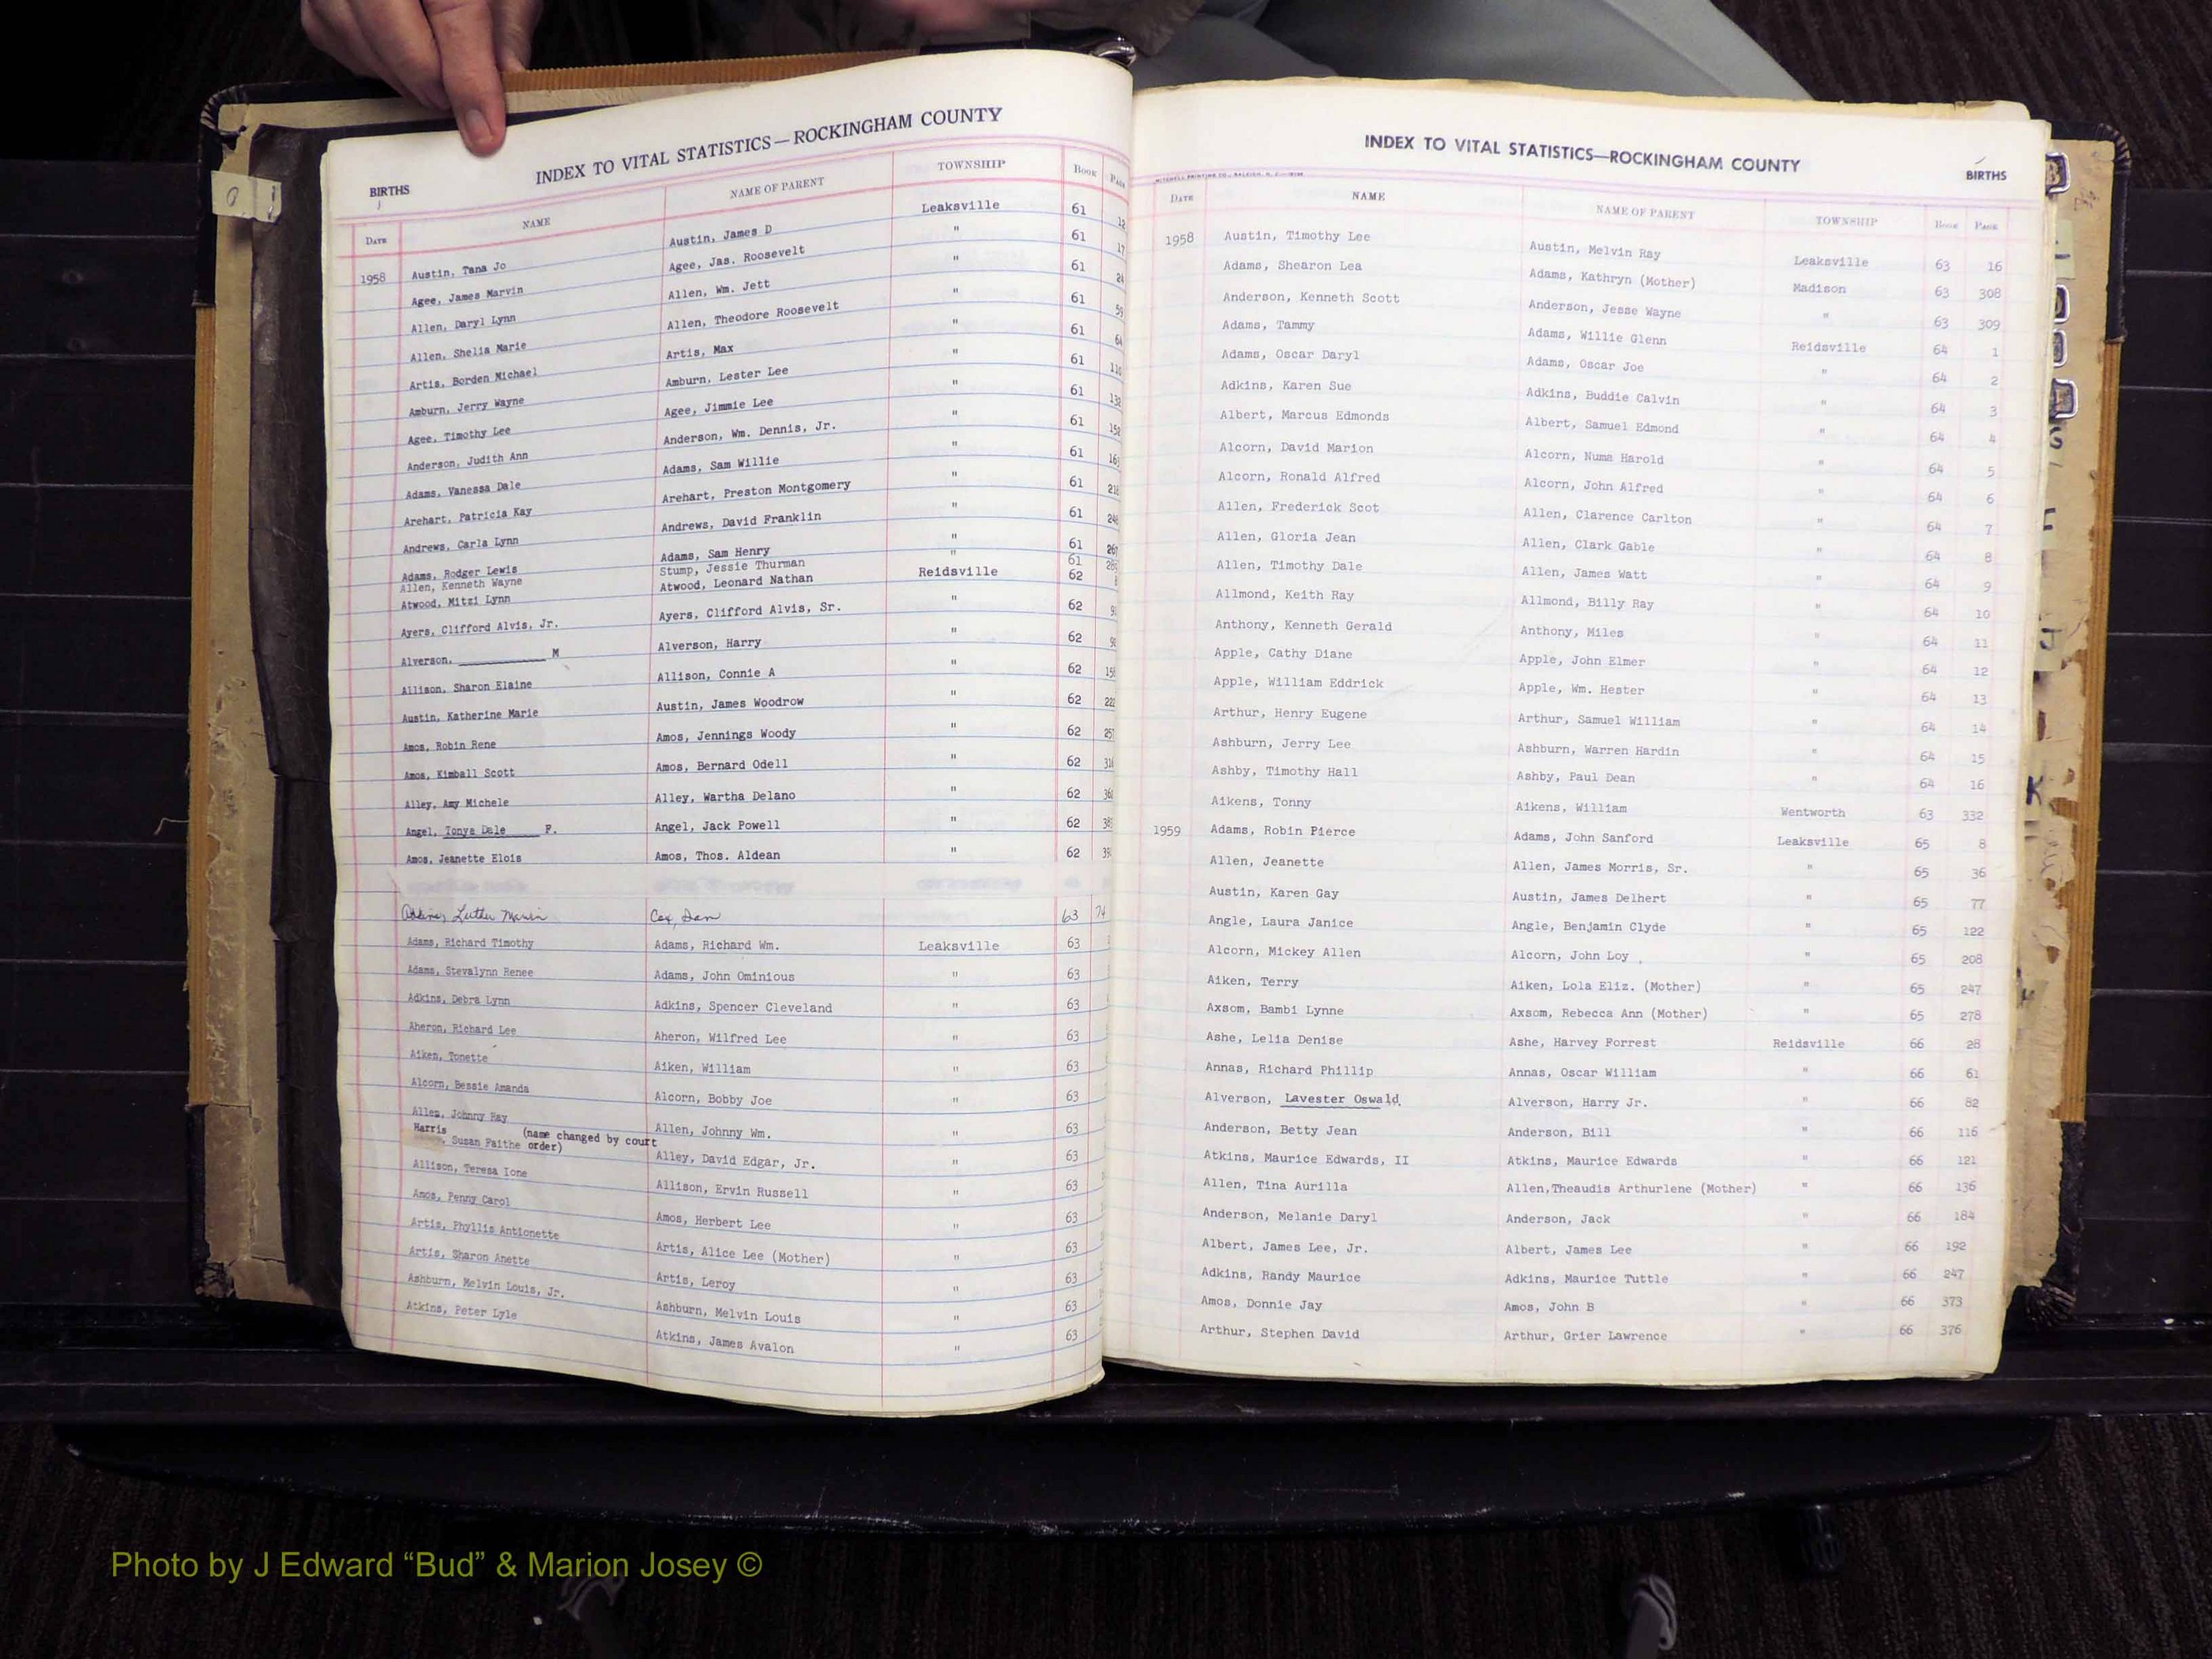 INDEX TO VITAL STATISTICS—ROCKINGHAM COUNTY
BIRTHS
DATE NAME NAME OF PARENT TOWNSHIP BOOK PAGE
1958 Austin, Tana Jo Austin, James D Leaksville 61 12
Agee, James Marvin Agee, Jas. Roosevelt " 61 17
Allen, Daryl Lynn Allen, Wm. Jett " 61
Allen, Shelia Marie Allen, Theodore Roosevelt " 61
Artis, Borden Michael Artis, Max " 61
Amburn, Jerry Wayne Amburn, Lester Lee " 61
Agee, Timothy Lee Agee, Jimmie Lee " 61
Anderson, Judith Ann Anderson, Wm. Dennis, Jr. " 61
Adams, Vanessa Dale Adams, Sam Willie " 61
Arehart, Patricia Kay Arehart, Preston Montgomery " 61
Andrews, Carla Lynn Andrews, David Franklin " 61
Adams, Rodger Lewis Adams, Sam Henry " 61
Allen, Kenneth Wayne Stump, Jessie Thurman " 61
Atwood, Mitzi Lynn Atwood, Leonard Nathan Reidsville 62
Ayers, Clifford Alvis, Jr. Ayers, Clifford Alvis, Sr. " 62
Alverson, ____________ M Alverson, Harry " 62
Allison, Sharon Elaine Allison, Connie A " 62
Austin, Katherine Marie Austin, James Woodrow " 62
Amos, Robin Rene Amos, Jennings Woody " 62
Amos, Kimball Scott Amos, Bernard Odell " 62
Alley, Amy Michele Alley, Wartha Delano " 62
Angel, Tonya Dale F. Angel, Jack Powell " 62
Amos, Jeanette Elois Amos, Thos. Aldean " 62
Adkins, Luther Marvin Cox, Dan 63 74
Adams, Richard Timothy Adams, Richard Wm. Leaksville 63
Adams, Stevalynn Renee Adams, John Ominious " 63
Adkins, Debra Lynn Adkins, Spencer Cleveland " 63
Aheron, Richard Lee Aheron, Wilfred Lee " 63
Aiken, Tonette Aiken, William " 63
Alcorn, Bessie Amanda Alcorn, Bobby Joe " 63
Allen, Johnny Ray Allen, Johnny Wm. " 63
Harris, Susan Faithe (name changed by court order) Alley, David Edgar, Jr. " 63
Allison, Teresa Ione Allison, Ervin Russell " 63
Amos, Penny Carol Amos, Herbert Lee " 63
Artis, Phyllis Antionette Artis, Alice Lee (Mother) " 63
Artis, Sharon Anette Artis, Leroy " 63
Ashburn, Melvin Louis, Jr. Ashburn, Melvin Louis " 63
Atkins, Peter Lyle Atkins, James Avalon " 63
INDEX TO VITAL STATISTICS—ROCKINGHAM COUNTY
BIRTHS
DATE NAME NAME OF PARENT TOWNSHIP BOOK PAGE
1958 Austin, Timothy Lee Austin, Melvin Ray Leaksville 63 16
Adams, Shearon Lea Adams, Kathryn (Mother) Madison 63 308
Anderson, Kenneth Scott Anderson, Jesse Wayne " 63 309
Adams, Tammy Adams, Willie Glenn Reidsville 64 1
Adams, Oscar Daryl Adams, Oscar Joe " 64 2
Adkins, Karen Sue Adkins, Buddie Calvin " 64 3
Albert, Marcus Edmonds Albert, Samuel Edmond " 64 4
Alcorn, David Marion Alcorn, Numa Harold " 64 5
Alcorn, Ronald Alfred Alcorn, John Alfred " 64 6
Allen, Frederick Scot Allen, Clarence Carlton " 64 7
Allen, Gloria Jean Allen, Clark Gable " 64 8
Allen, Timothy Dale Allen, James Watt " 64 9
Allmond, Keith Ray Allmond, Billy Ray " 64 10
Anthony, Kenneth Gerald Anthony, Miles " 64 11
Apple, Cathy Diane Apple, John Elmer " 64 12
Apple, William Eddrick Apple, Wm. Hester " 64 13
Arthur, Henry Eugene Arthur, Samuel William " 64 14
Ashburn, Jerry Lee Ashburn, Warren Hardin " 64 15
Ashby, Timothy Hall Ashby, Paul Dean " 64 16
Aikens, Tonny Aikens, William Wentworth 63 332
1959 Adams, Robin Pierce Adams, John Sanford Leaksville 65 8
Allen, Jeanette Allen, James Morris, Sr. " 65 36
Austin, Karen Gay Austin, James Delhert " 65 77
Angle, Laura Janice Angle, Benjamin Clyde " 65 122
Alcorn, Mickey Allen Alcorn, John Loy " 65 208
Aiken, Terry Aiken, Lola Eliz. (Mother) " 65 247
Axsom, Bambi Lynne Axsom, Rebecca Ann (Mother) " 65 278
Ashe, Lelia Denise Ashe, Harvey Forrest Reidsville 66 28
Annas, Richard Phillip Annas, Oscar William " 66 61
Alverson, Lavester Oswald. Alverson, Harry Jr. " 66 82
Anderson, Betty Jean Anderson, Bill " 66 116
Atkins, Maurice Edwards, II Atkins, Maurice Edwards " 66 121
Allen, Tina Aurilla Allen,Theaudis Arthurlene (Mother) " 66 136
Anderson, Melanie Daryl Anderson, Jack " 66 184
Albert, James Lee, Jr. Albert, James Lee " 66 192
Adkins, Randy Maurice Adkins, Maurice Tuttle " 66 247
Amos, Donnie Jay Amos, John B " 66 373
Arthur, Stephen David Arthur, Grier Lawrence " 66 376
Photo by J Edward “Bud” & Marion Josey ©